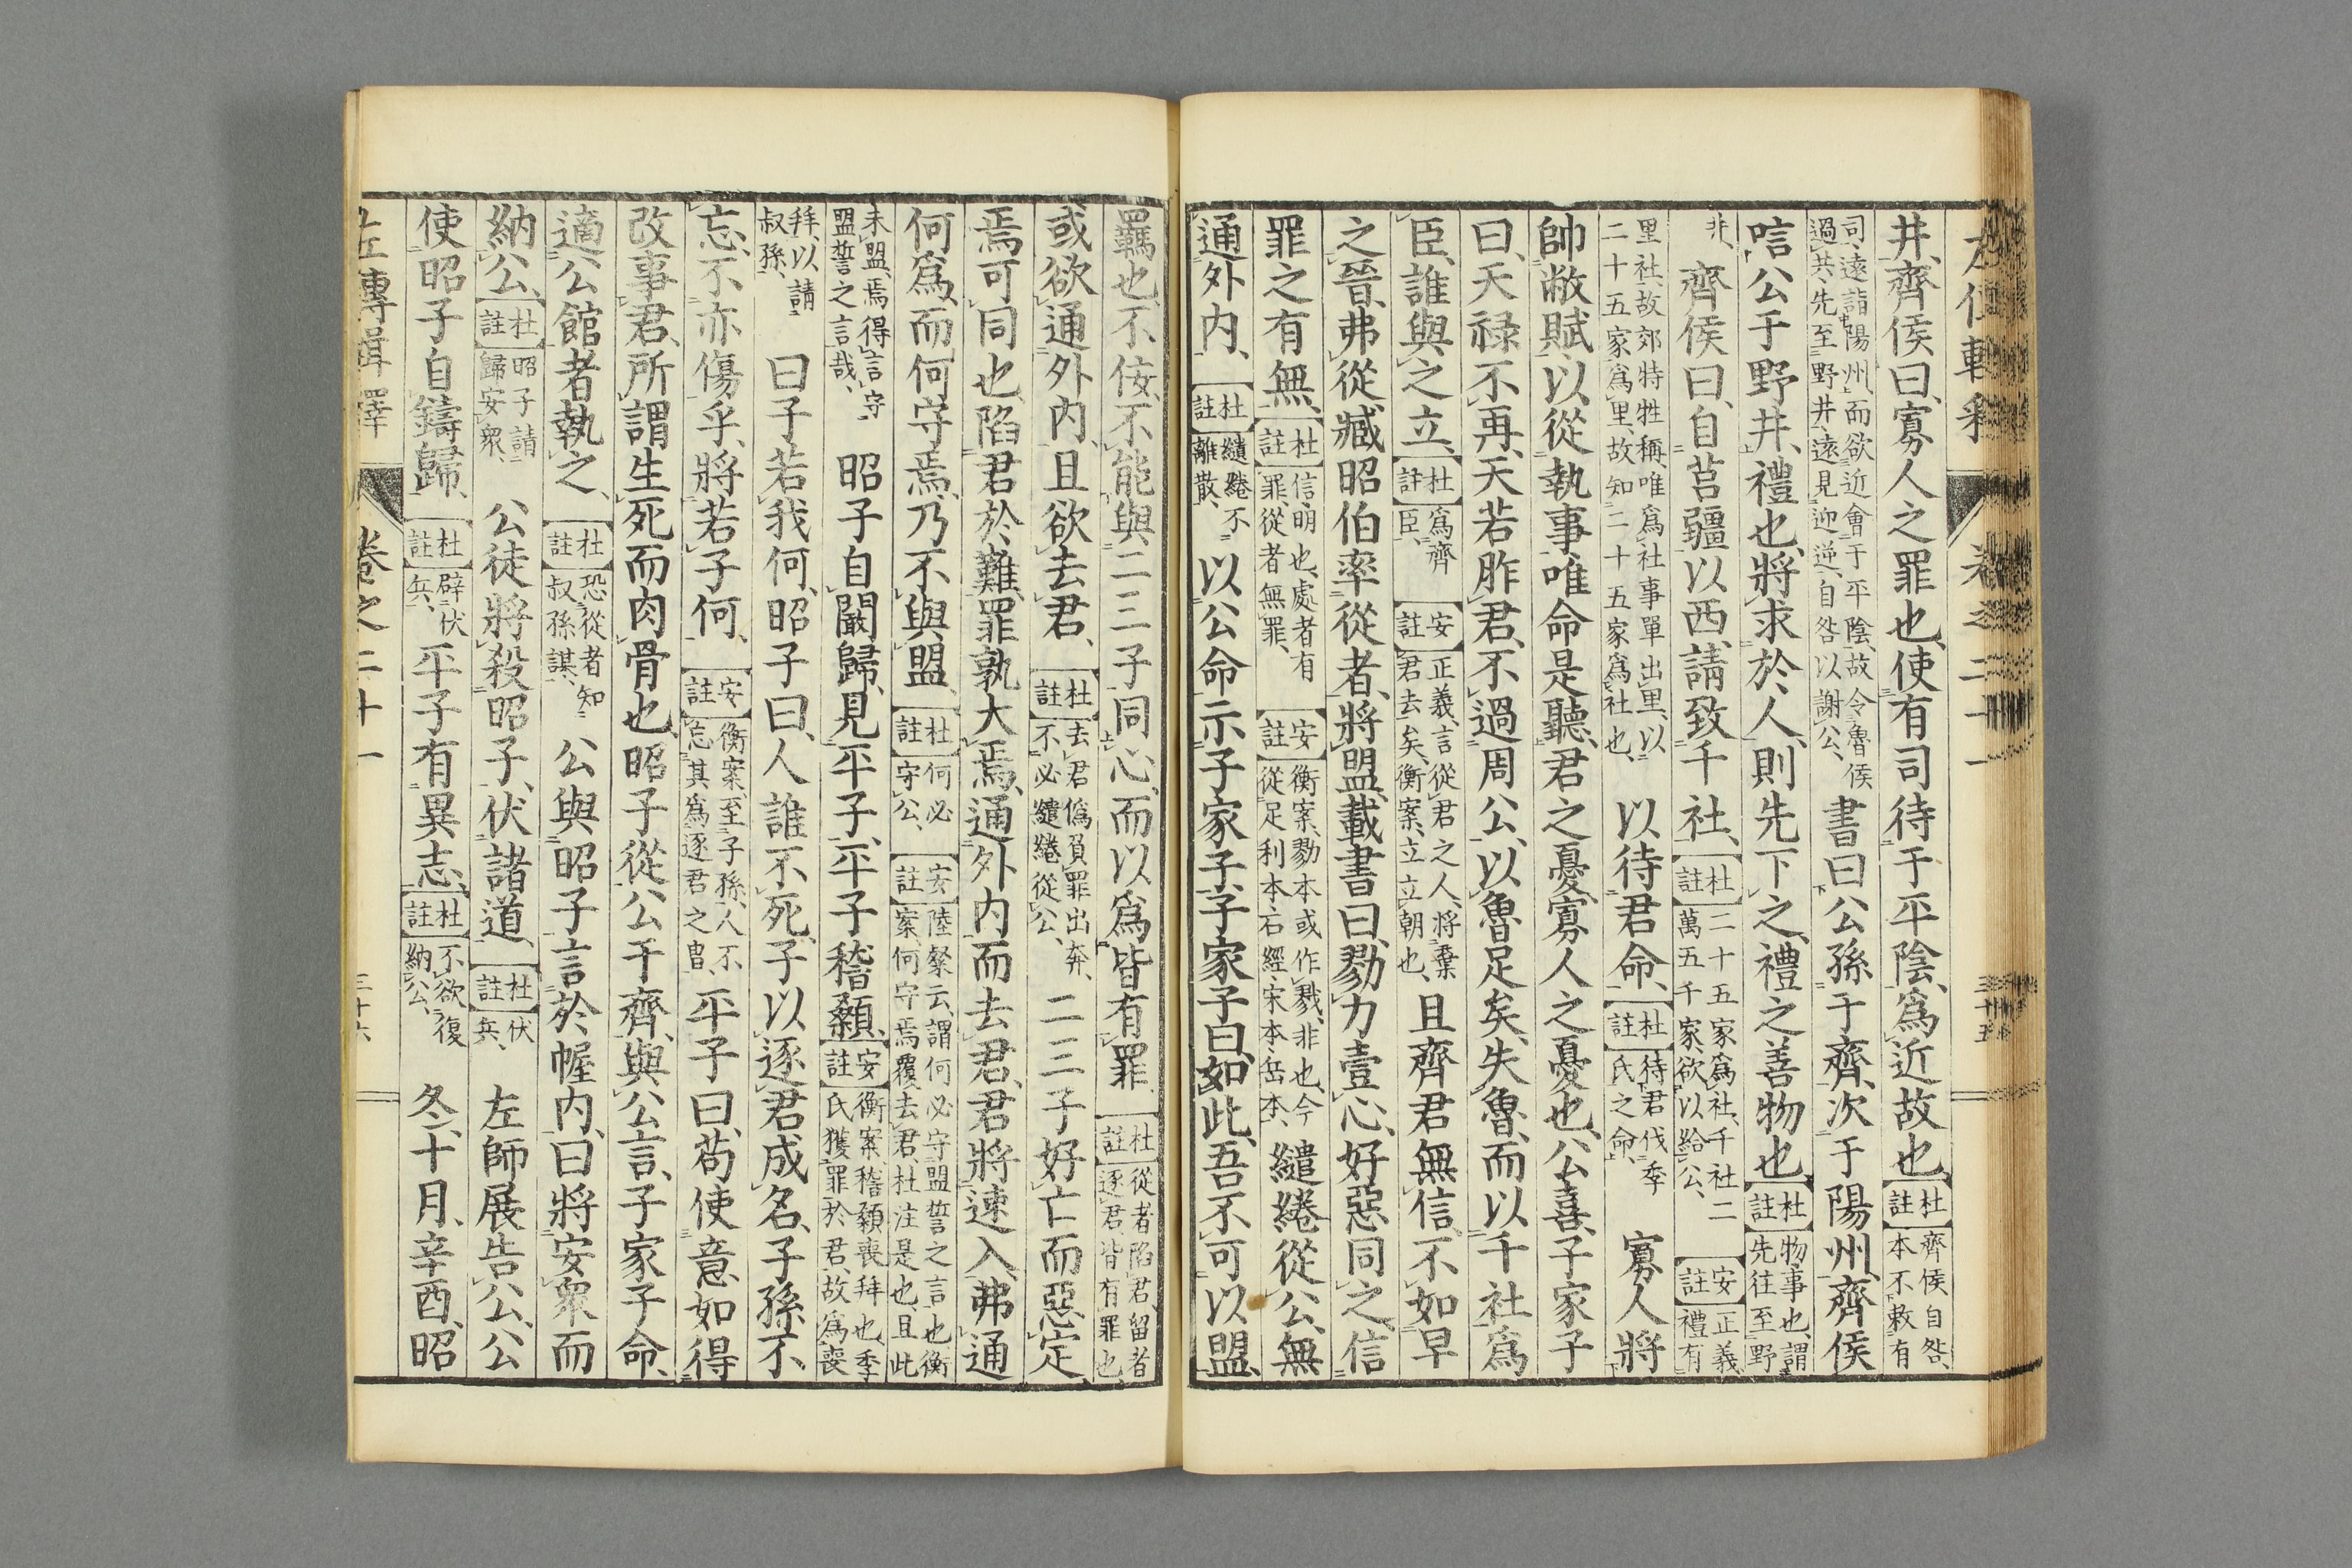 左傳輯釋 卷之二十一 三十五
井、齊侯曰、寡人之罪也、使有司待于平陰、爲近故也、【杜註】齊侯自咎、本不敕有
司遠詣陽州、而欲近會于平陰、故令魯侯過共、先至野井、遠見迎逆、自咎以謝公、書曰公孫于齊、次于陽州、齊侯
唁公于野井、禮也、將求於人、則先下之、禮之善物也、【杜註】物事也、謂先往至野
井、齊侯曰、自莒疆以西、請致千社、【杜註】二十五家爲社、千社二萬五千家、欲以給公、【安註】正義禮有
里社、故郊特牲稱、唯爲社事單出里、以二十五家爲里、故知二十五家爲社也、以待君命、【杜註】待君伐季氏之命、寡人將
帥敝賦、以從執事唯命是聽、君之憂、寡人之憂也、公喜、子家子
曰、天禄不再、天若胙君、不過周公、以魯足矣、失魯、而以千社爲
臣、誰與之立、【杜註】爲齊臣、【安註】正義、言從君之人、將棄君去矣、衡案、立立朝也、且齊君無信、不如早
之晉、弗從、臧昭伯率從者、將盟、載書曰、勠力壹心、好惡同之、信
罪之有無、【杜註】信明也、處者有罪、從者無罪、【安註】衡案、勠本或作戮、非也、今從足利本石經宋本岳本、繾綣從公、無
通外内、【杜註】繾綣不離散、以公命示子家子、子家子曰、如此、吾不可以盟、
羈也、不佞、不能與二三子同心、而以爲皆有罪、【杜註】從者陷君留者逐君、皆有罪也、
或欲通外内、且欲去君、【杜註】去君僞負罪出奔、不必繾綣從公、二三子好亡而惡定、
焉可同也、陷君於難、罪孰大焉、通外内而去君、君將速入、弗通
何爲、而何守焉、乃不與盟、【杜註】何必守公、【安註】陸粲云、謂何必守盟誓之言也、衡案、何守焉覆去君、杜注是也、且此
未盟、焉得言守盟誓之言哉、昭子自闞歸、見平子、平子稽顙、【安註】衡案、稽顙喪拜也、季氏獲罪於君、故爲喪
拜、以請叔孫、曰子若我何、昭子曰、人誰不死、子以逐君成名、子孫不
忘、不亦傷乎、將若子何、【安註】衡案、至子孫、人不忘其爲逐君之冑、平子曰、苟使意如得
改事君、所謂生死而肉骨也、昭子從公于齊、與公言、子家子命、
適公館者執之、【杜註】恐從者知叔孫謀、公與昭子言於幄内、曰將安衆而
納公、【杜註】昭子請歸安衆、公徒將殺昭子、伏諸道、【杜註】伏兵、左師展告公、公
使昭子自鑄歸、【杜註】辟伏兵、平子有異志、【杜註】不欲復納公、冬、十月、辛酉、昭
左傳輯釋 卷之二十一 三十六